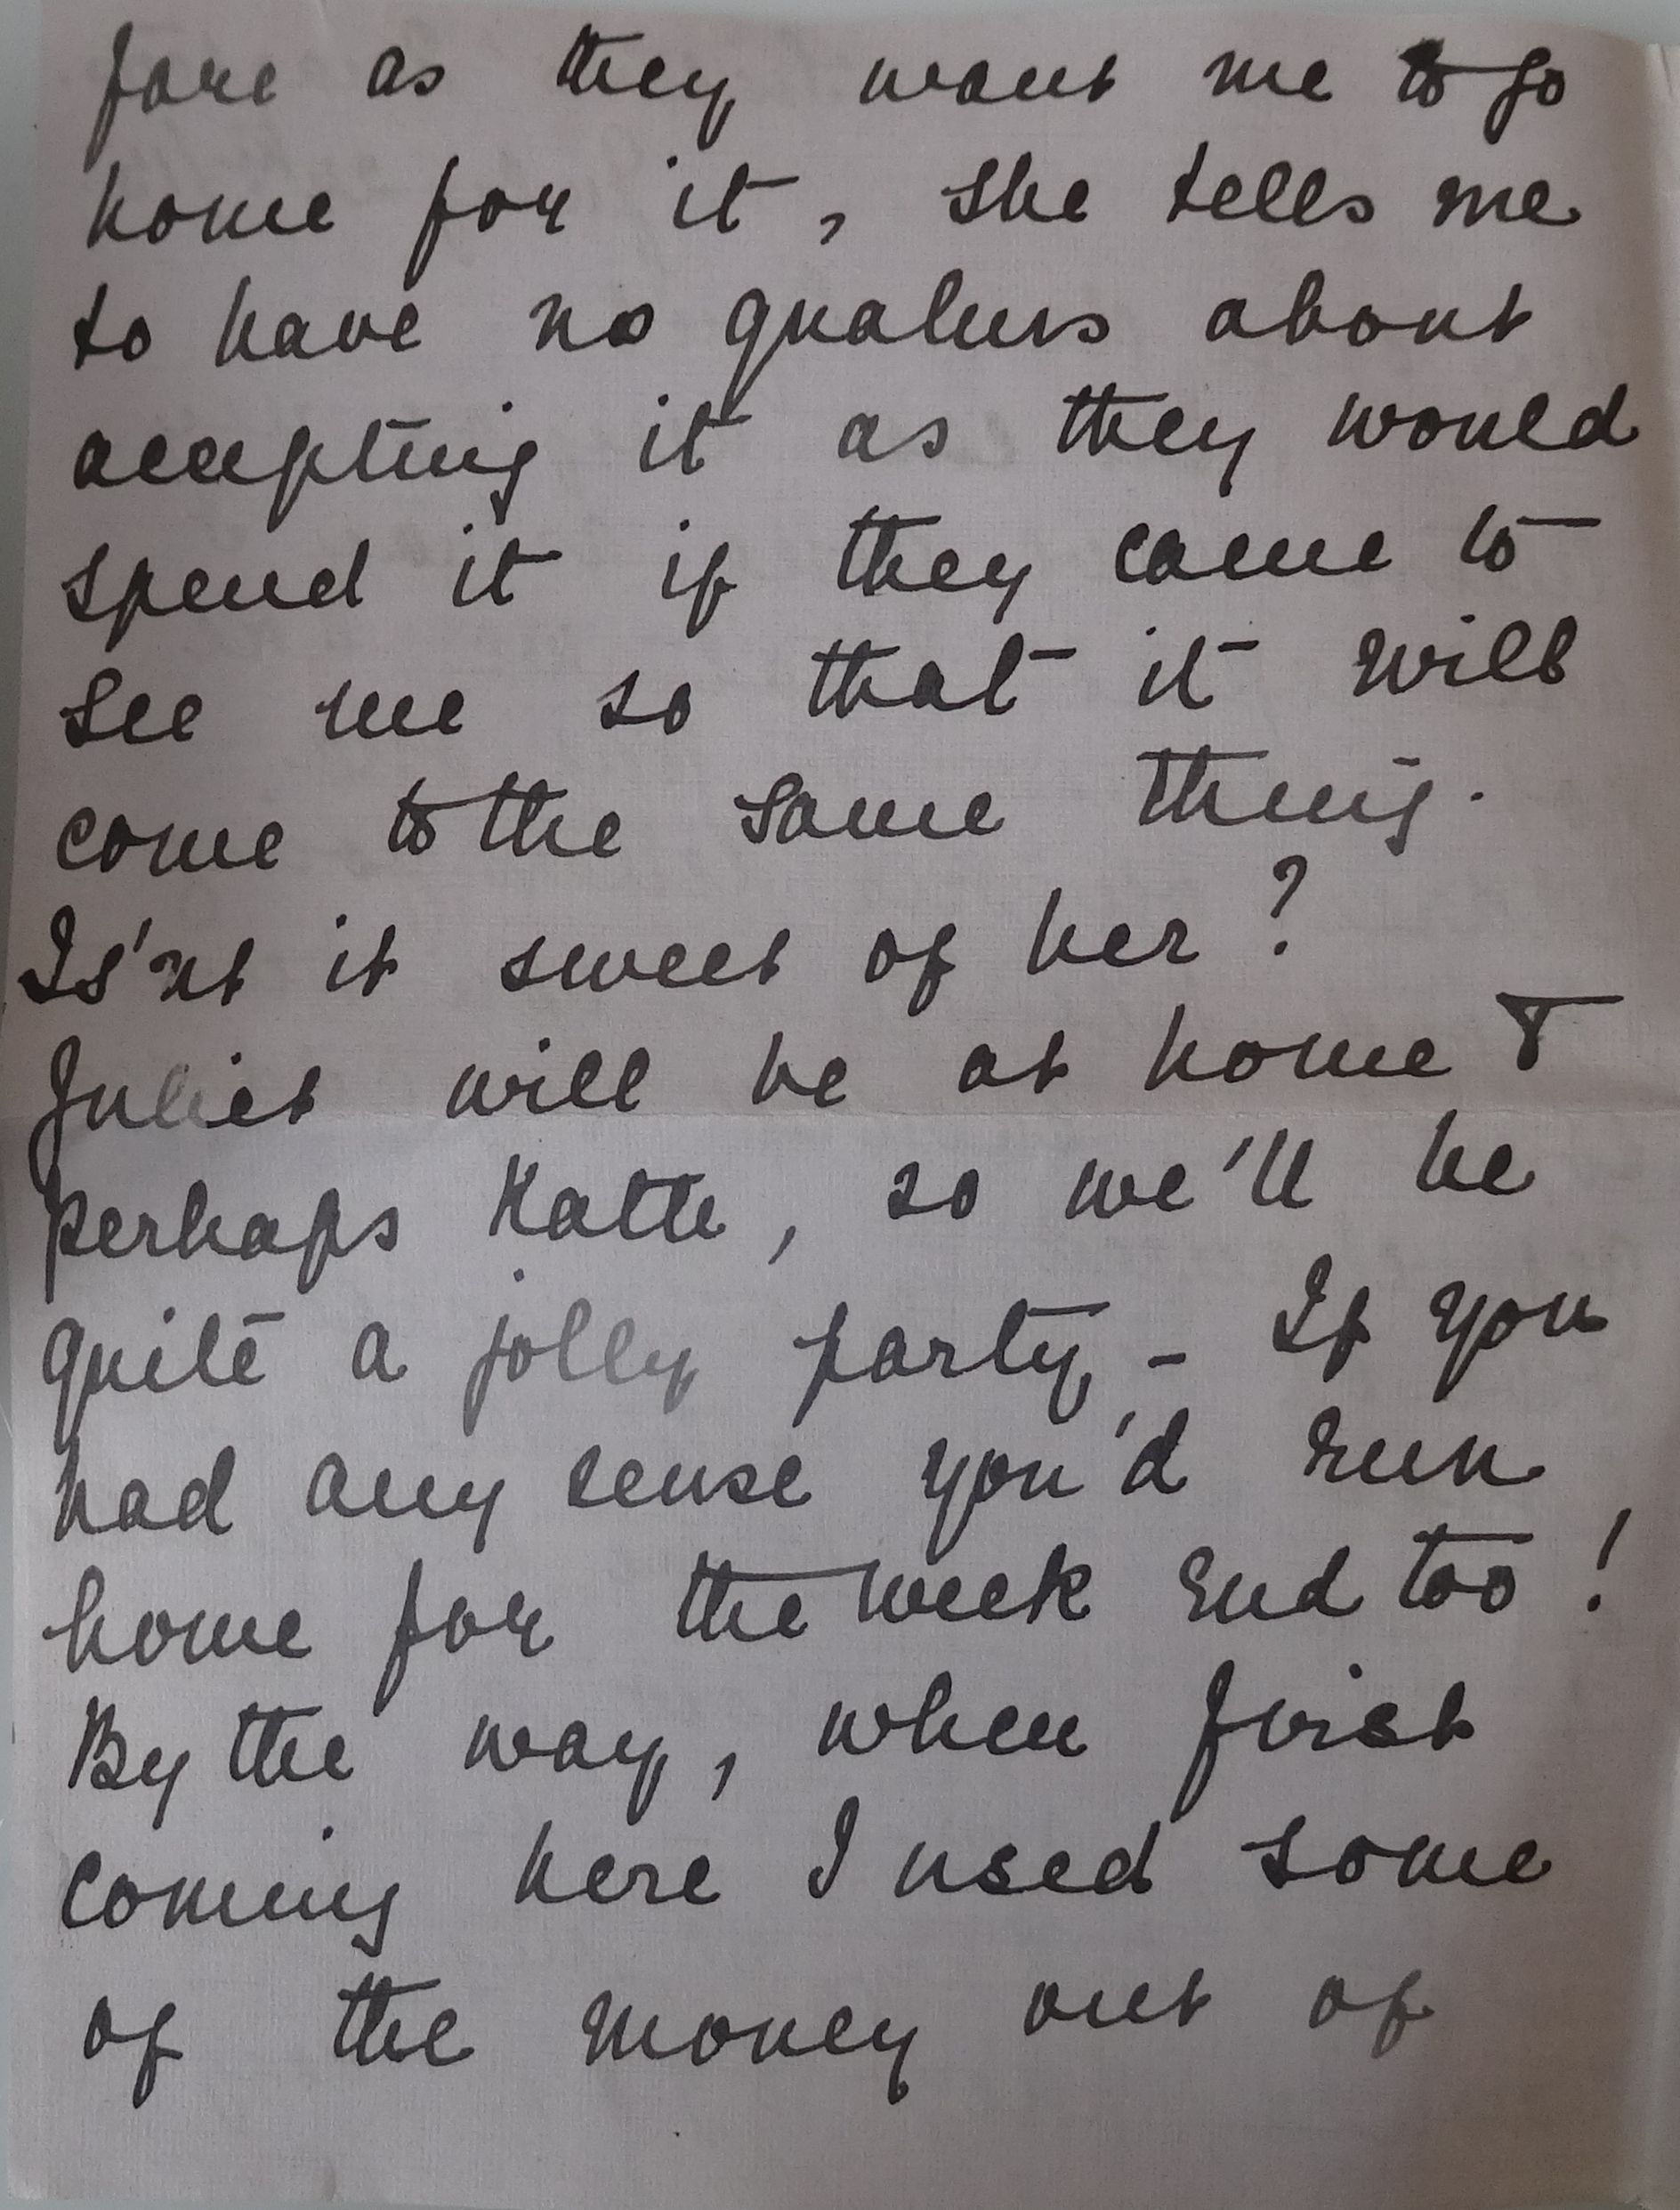 fare as they want me to go
home for it, she tells me
to have no qualms about
accepting it as they would
spend it if they came to
see me so that it will
come to the same thing.
Is'nt it sweet of her?
Juliet will be at home &
perhaps Katte, so we'll be
quite a jolly party - If you
had any sense you'd run
home for the week end too!
By the way, when first
coming here I used some
of the money out of